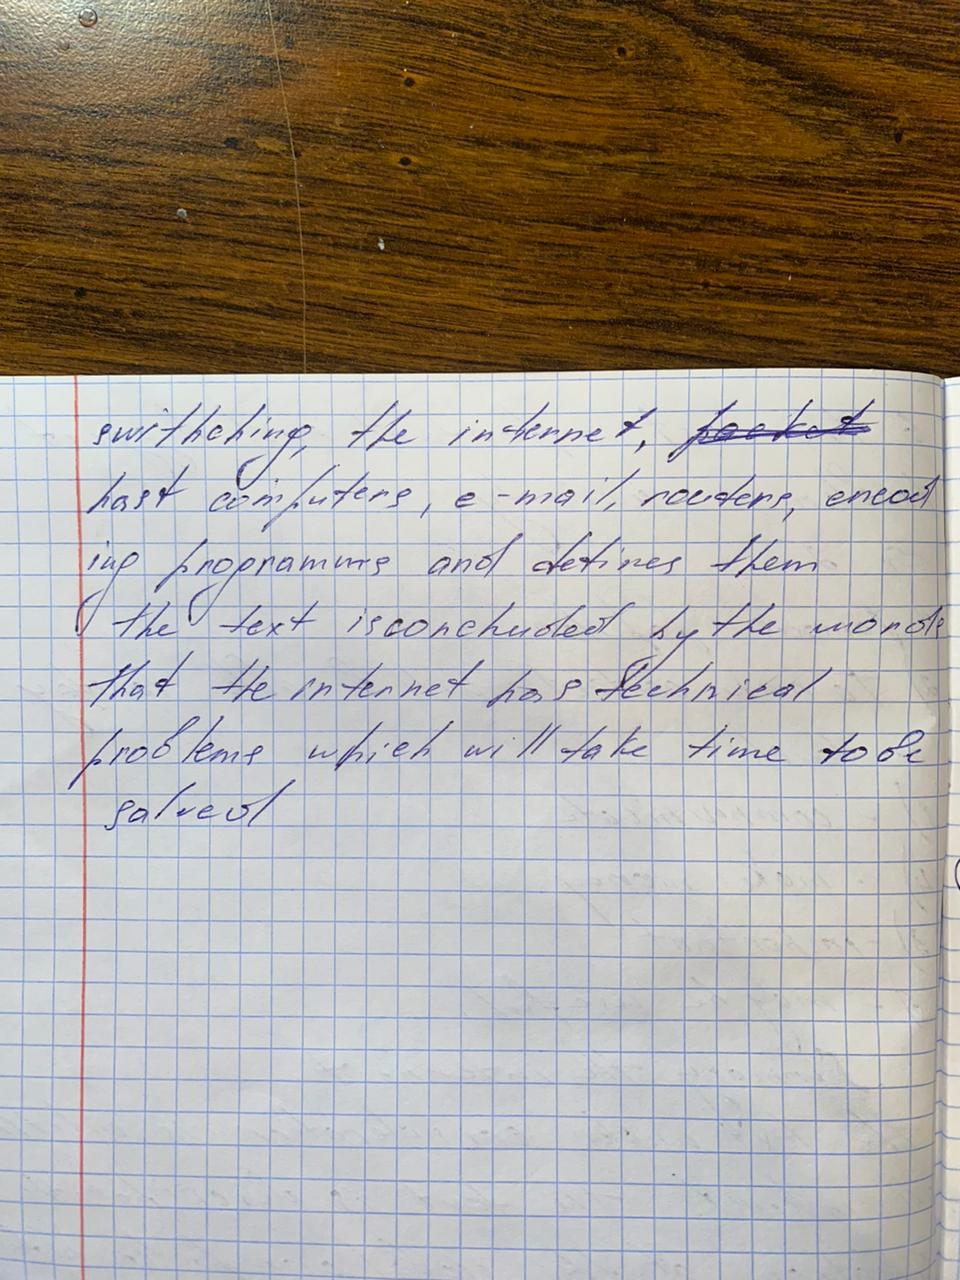 swithching, the internet, packet
host computers, e-mail, routers, encod
ing programms and defines them
the text is concluded by the words
that the internet has technical
problems which will take time to be
solved